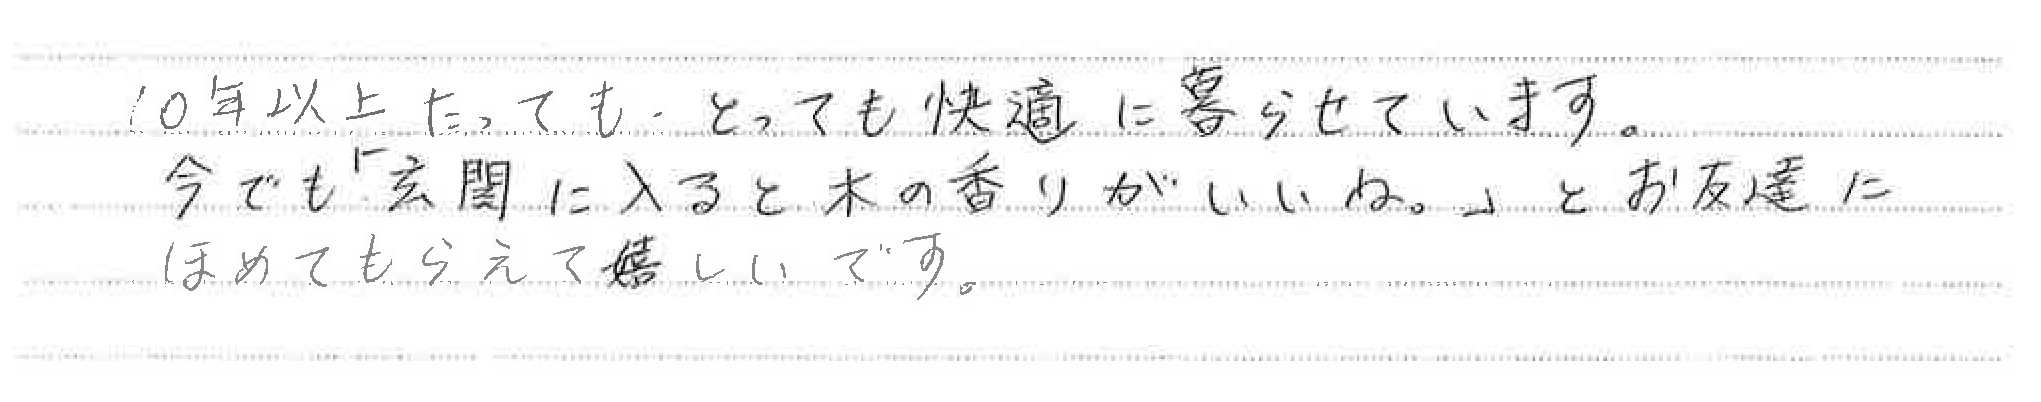 10年以上たっても、とっても快適に暮らせています。
今でも「玄関に入ると木の香りがいいね。」とお友達に
ほめてもらえて嬉しいです。